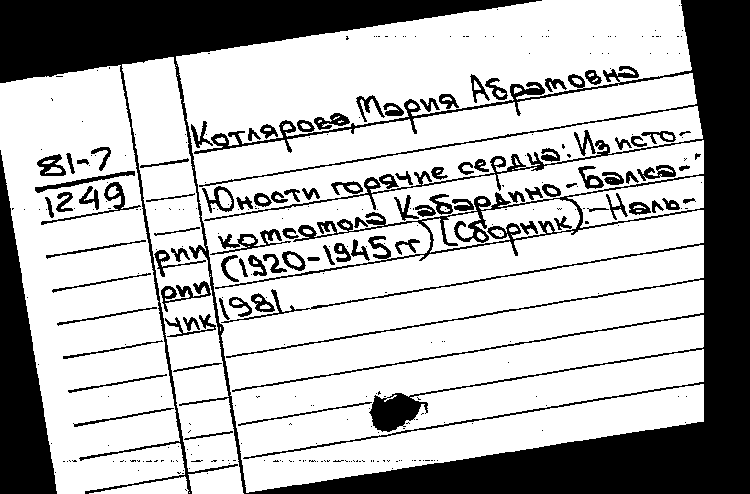 Котлярова, Мария Абрамовна
81-7
1249
Юности горячие сердца: Из исто-
рии комсомола Кабардино-Балка-
рии (1920-1945 гг) [Сборник). - Наль-
чик, 1981.